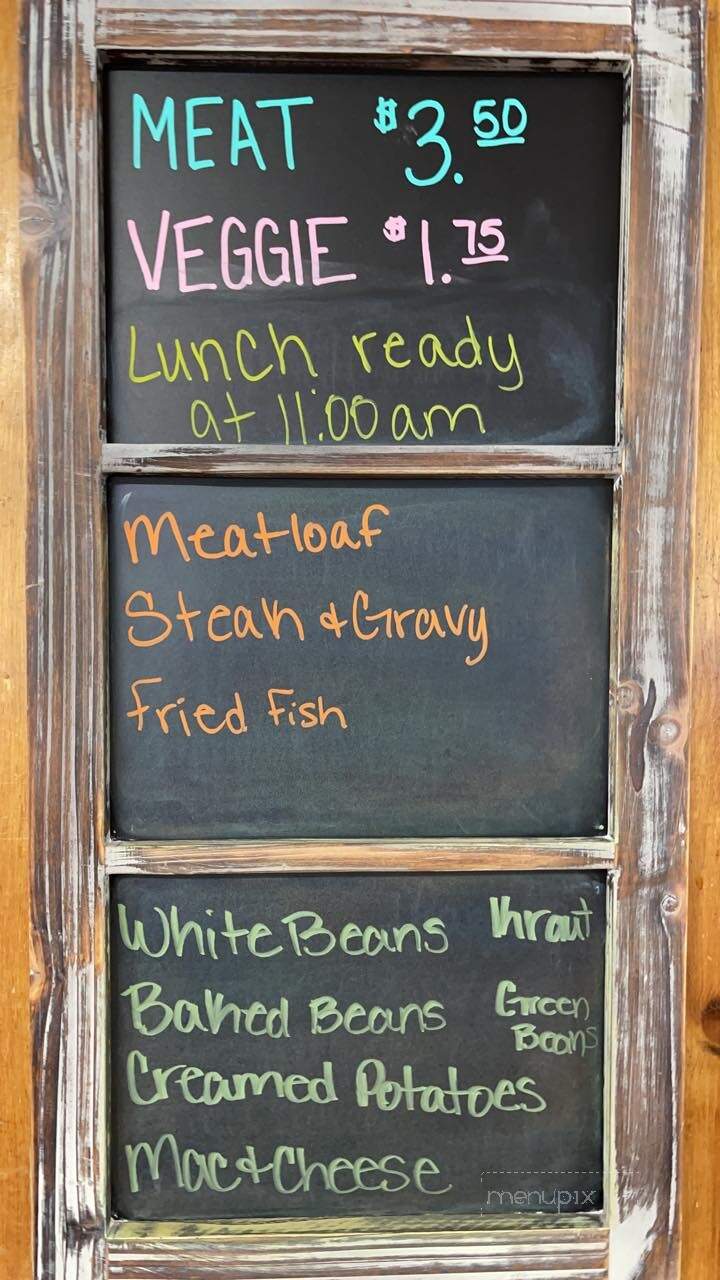 MEAT $3.50
VEGGIE $1.75
Lunch ready
at 11:00am
Meatloaf
Steak & Gravy
Fried Fish
White Beans
Kraut
Baked Beans
Green
Beans
Creamed Potatoes
Mac & Cheese
menupix